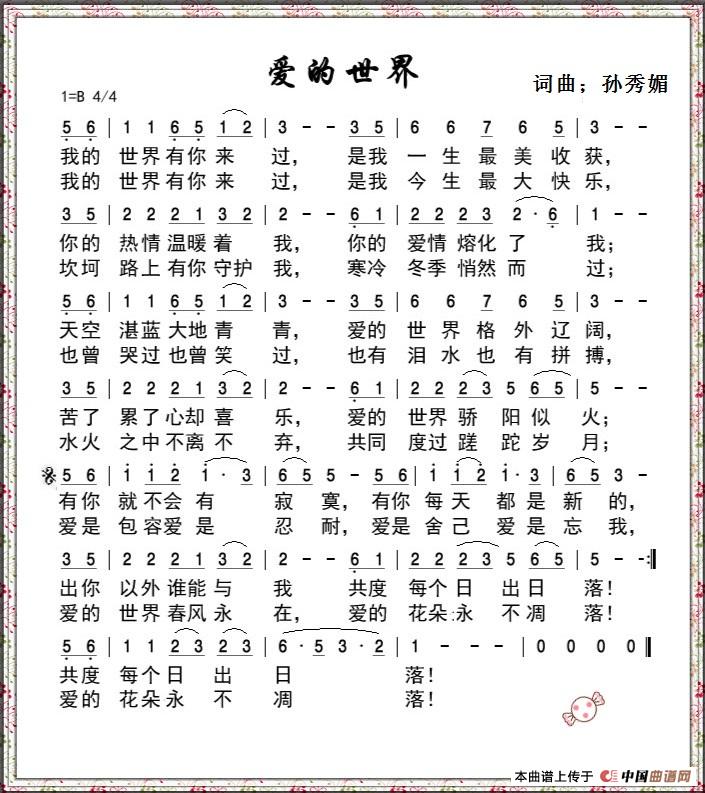 爱的世界
词曲；孙秀媚
1=B 4/4
5 6 | 1 1 6 5 1 2 | 3 - - 3 5 | 6 6 7 6 5 | 3 - -
我的 世界有你来 过， 是我 一生最美收获，
我的 世界有你来 过， 是我 今生最大快乐，
3 5 | 2 2 2 1 3 2 | 2 - - 6 1 | 2 2 2 3 2 · 6 | 1 - -
你的 热情温暖着 我， 你的 爱情熔化了 我；
坎坷 路上有你守护 我， 寒冷 冬季悄然而 过；
5 6 | 1 1 6 5 1 2 | 3 - - 3 5 | 6 6 7 6 5 | 3 - -
天空 湛蓝大地青 青， 爱的 世界格外辽阔，
也曾 哭过也曾笑 过， 也有 泪水也有拼搏，
3 5 | 2 2 2 1 3 2 | 2 - - 6 1 | 2 2 2 3 5 6 5 | 5 - -
苦了 累了心却喜 乐， 爱的 世界骄阳似 火；
水火 之中不离不 弃， 共同 度过蹉跎岁 月；
5 6 | 1 1 2 1 · 3 | 6 5 5 - 5 6 | 1 1 2 1 · 3 | 6 5 3 -
有你 就不会有 寂寞，有你 每天都是新的，
爱是 包容爱是 忍耐，爱是 舍己爱是忘我，
3 5 | 2 2 2 1 3 2 | 2 - - 6 1 | 2 2 2 3 5 6 5 | 5 - - :‖
出你 以外谁能与 我 共度 每个日出日 落！
爱的 世界春风永 在， 爱的 花朵永不凋 落！
5 6 | 1 1 2 3 2 3 | 6 · 5 3 · 2 | 1 - - - | 0 0 0 0 ‖
共度 每个日出 日 落！
爱的 花朵永不 凋 落！
本曲谱上传于 中国曲谱网